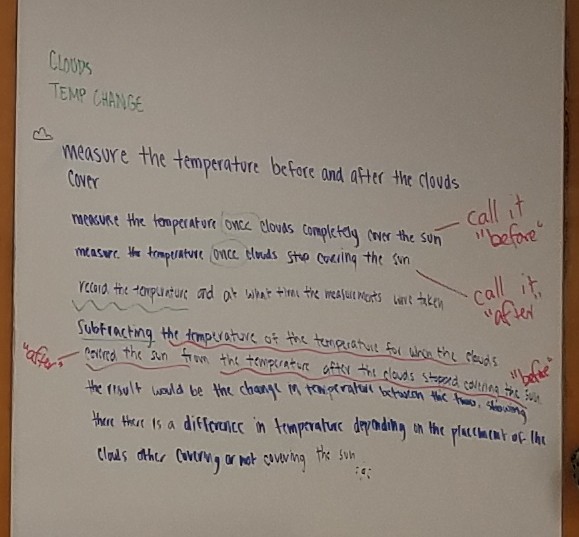 CLOUDS
TEMP CHANGE
measure the temperature before and after the clouds
cover
measure the temperature once clouds completely cover the sun
call it
"before"
measure the temperature once clouds stop covering the sun
call it
"after"
record the temperature and at what times the measurements were taken
Subtracting the temperature of the temperature for when the clouds
"before"
"after"
covered the sun from the temperature after the clouds stopped covering the sun
the result would be the change in temperature between the two, showing
there there is a difference in temperature depending on the placement of the
clouds other covering or not covering the sun